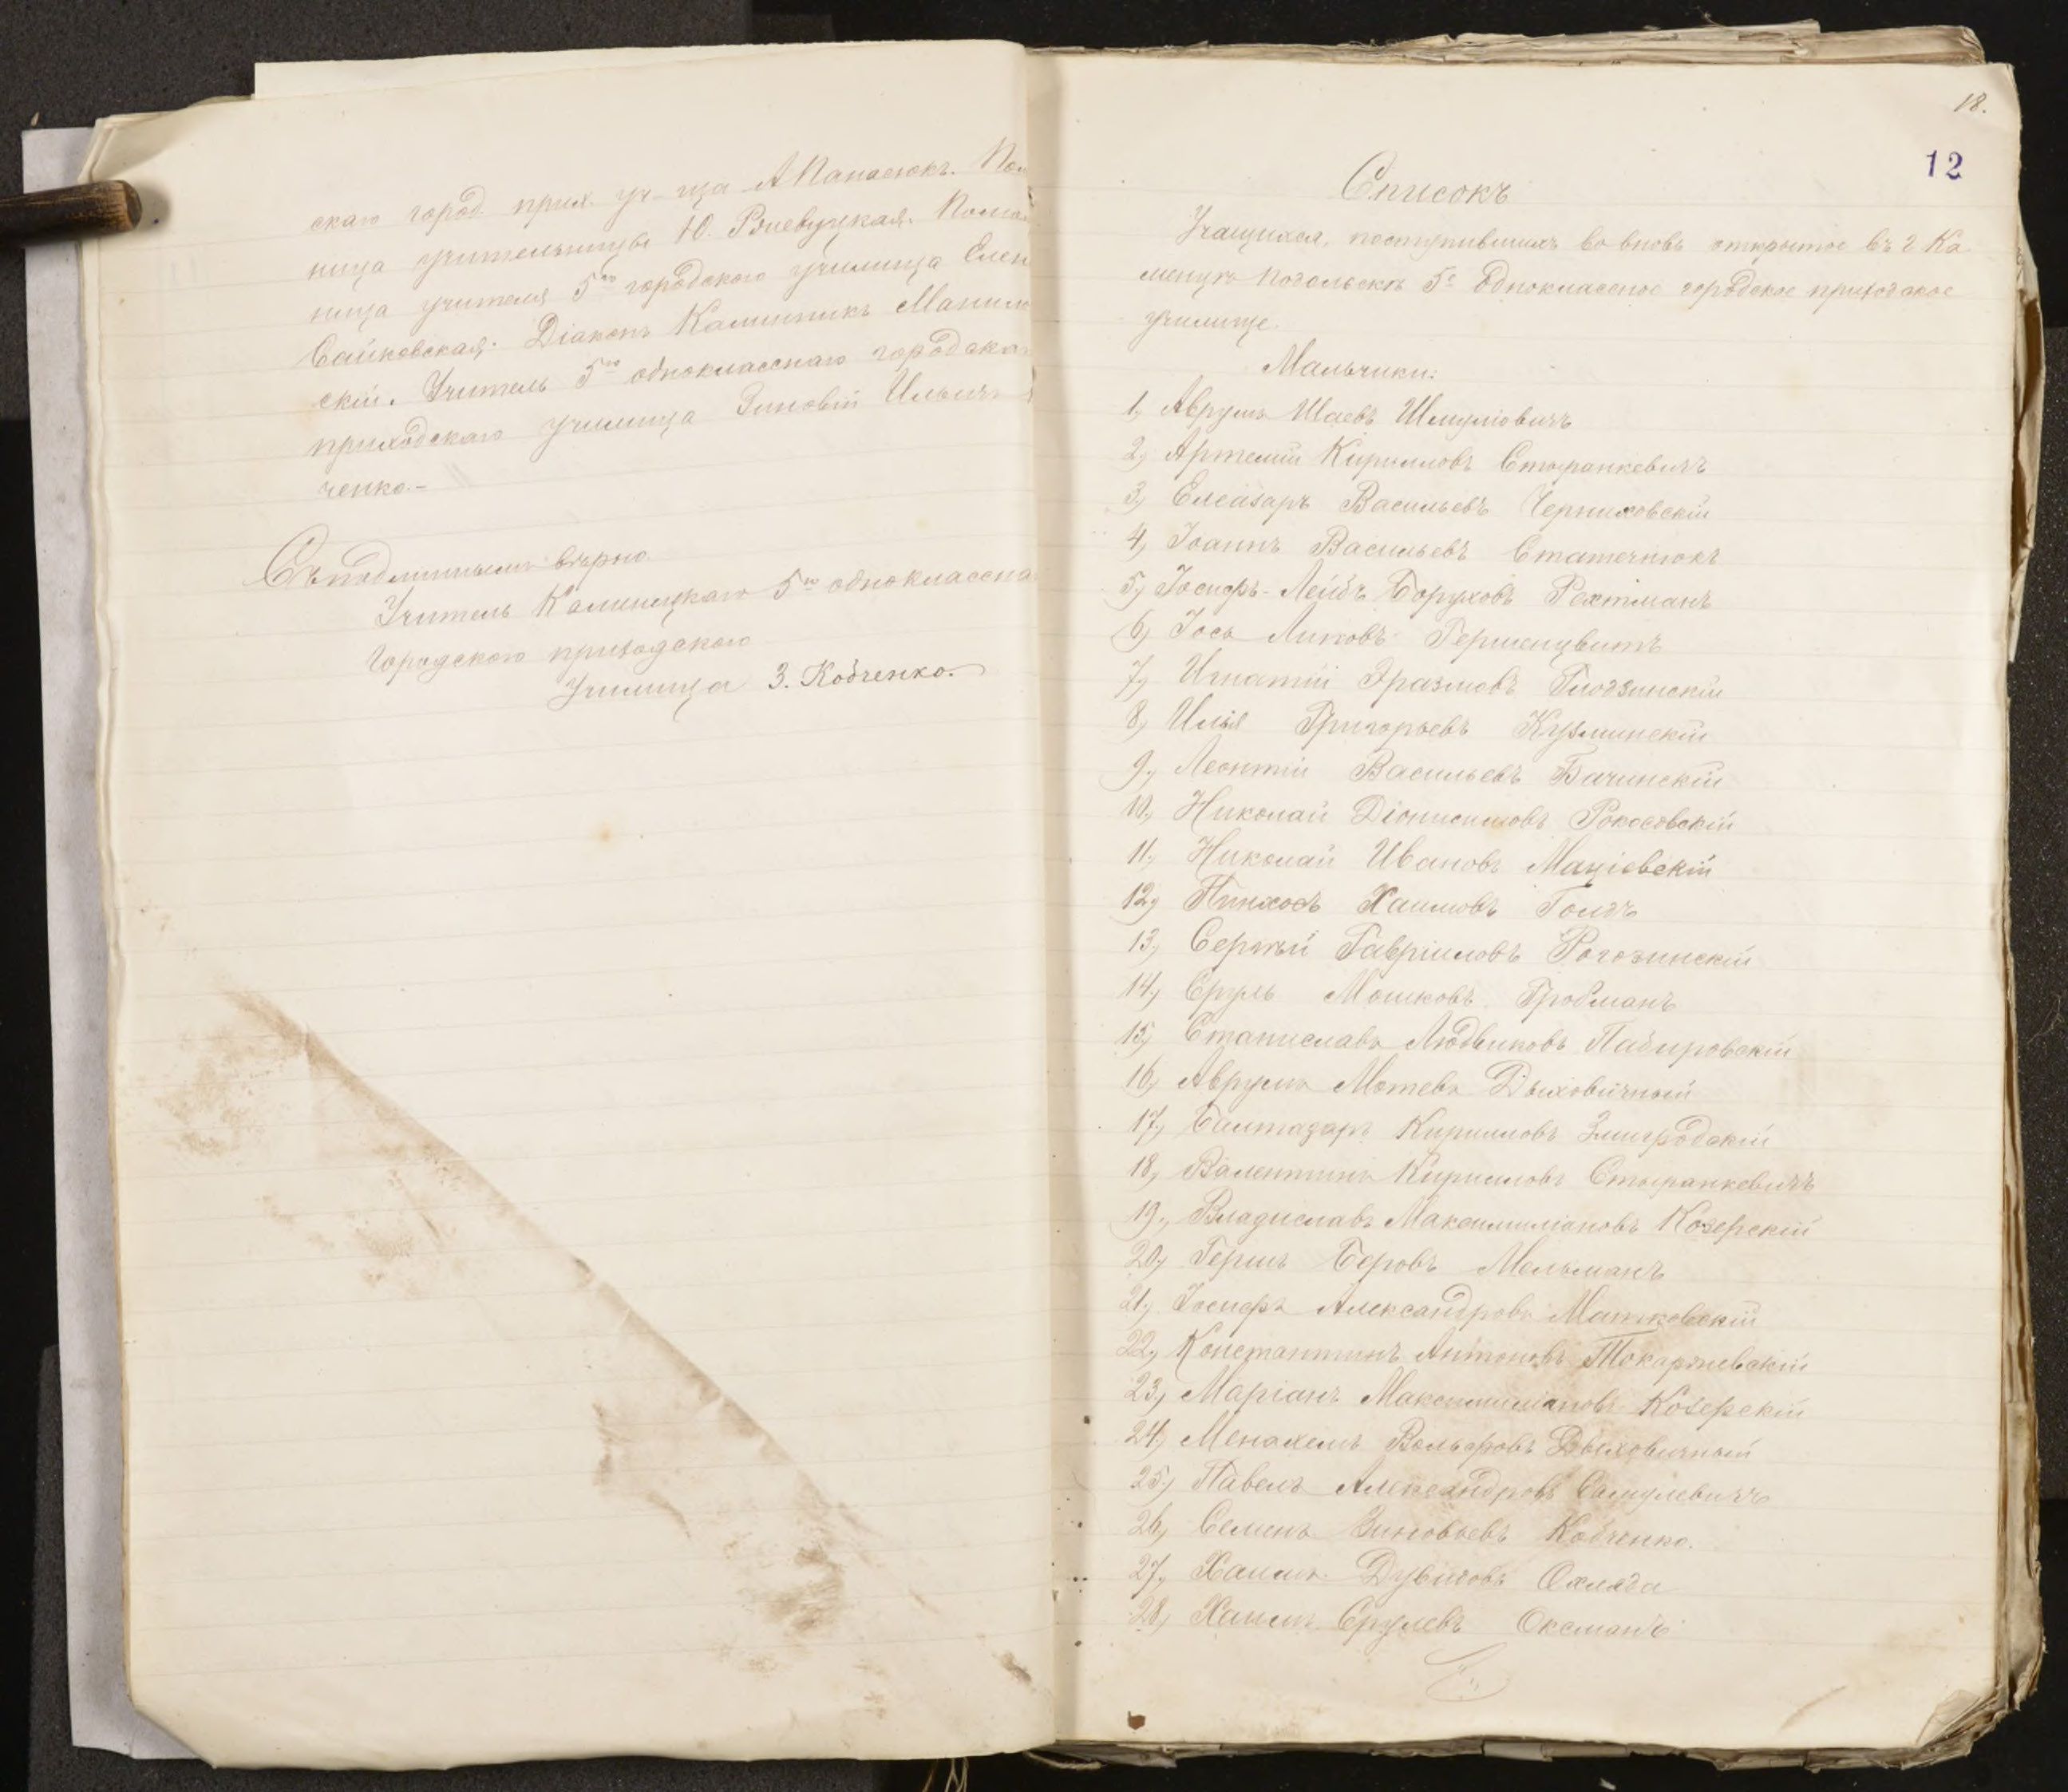 скаго город. прих. уч-ща А Панасюкъ. Пом
ница учительницы Ю. Ржевуцкая. Помощ
ница учителя 5го городского училища Елен
Сайковская. Діаконъ Каллиникъ Манили
скій. Учитель 5го одноклассного городска
приходскаго училища Зиновій Ильичъ
ченко.-
Съ подлиннымъ вѣрно.
Учитель Каменецкаго 5го одноклассна
городского приходского
училища З. Кобченко.
18.
12
Списокъ
Учащихся, поступившихъ во вновь открытое въ г. Ка-
менцѣ Подольскѣ 5е одноклассное городское приходское
училище.
Мальчики:
1, Аврумъ Шаевъ Шмуліовичъ
2, Артемій Кирилловъ Стыранкевичъ
3, Елеазаръ Васильевъ Черниховскій
4, Іоаннъ Васильевъ Статечнюкъ
5, Іосифъ-Лейбъ Боруховъ Рехтманъ
6, Іось Ицковъ Гершенцвитъ
7, Игнатій Эразмовъ Глодзинскій
8, Илья Григорьевъ Кузминскій
9, Леонтій Васильевъ Бачинскій
10, Николай Діонисіевъ Рокосовскій
11, Николай Ивановъ Маціевскій
12, Пинхосъ Хаимовъ Гольдъ
13, Сергѣй Гавріиловъ Рогозинскій
14, Сруль Мошковъ Гройсманъ
15, Станиславъ Людвиковъ Пабировскій
16, Аврумъ Мотевъ Дыховичный
17, Балтазаръ Кирилловъ Змигродскій
18, Валентинъ Кирилловъ Стыранкевичъ
19, Владиславъ Максимиліановъ Козерскій
20, Гершъ Беровъ Мельманъ
21, Іосифъ Александровъ Матковскій
22, Константинъ Антоновъ Токаржевскій
23, Маріанъ Максимиліановъ Козерскій
24, Менахемъ Вольфовъ Дыховичный
25, Павелъ Александровъ Самулевичъ
26, Семенъ Зиновьевъ Кобченко.
27, Хаимъ Дувидовъ Охляда
28, Хаимъ Срулевъ Оксманъ